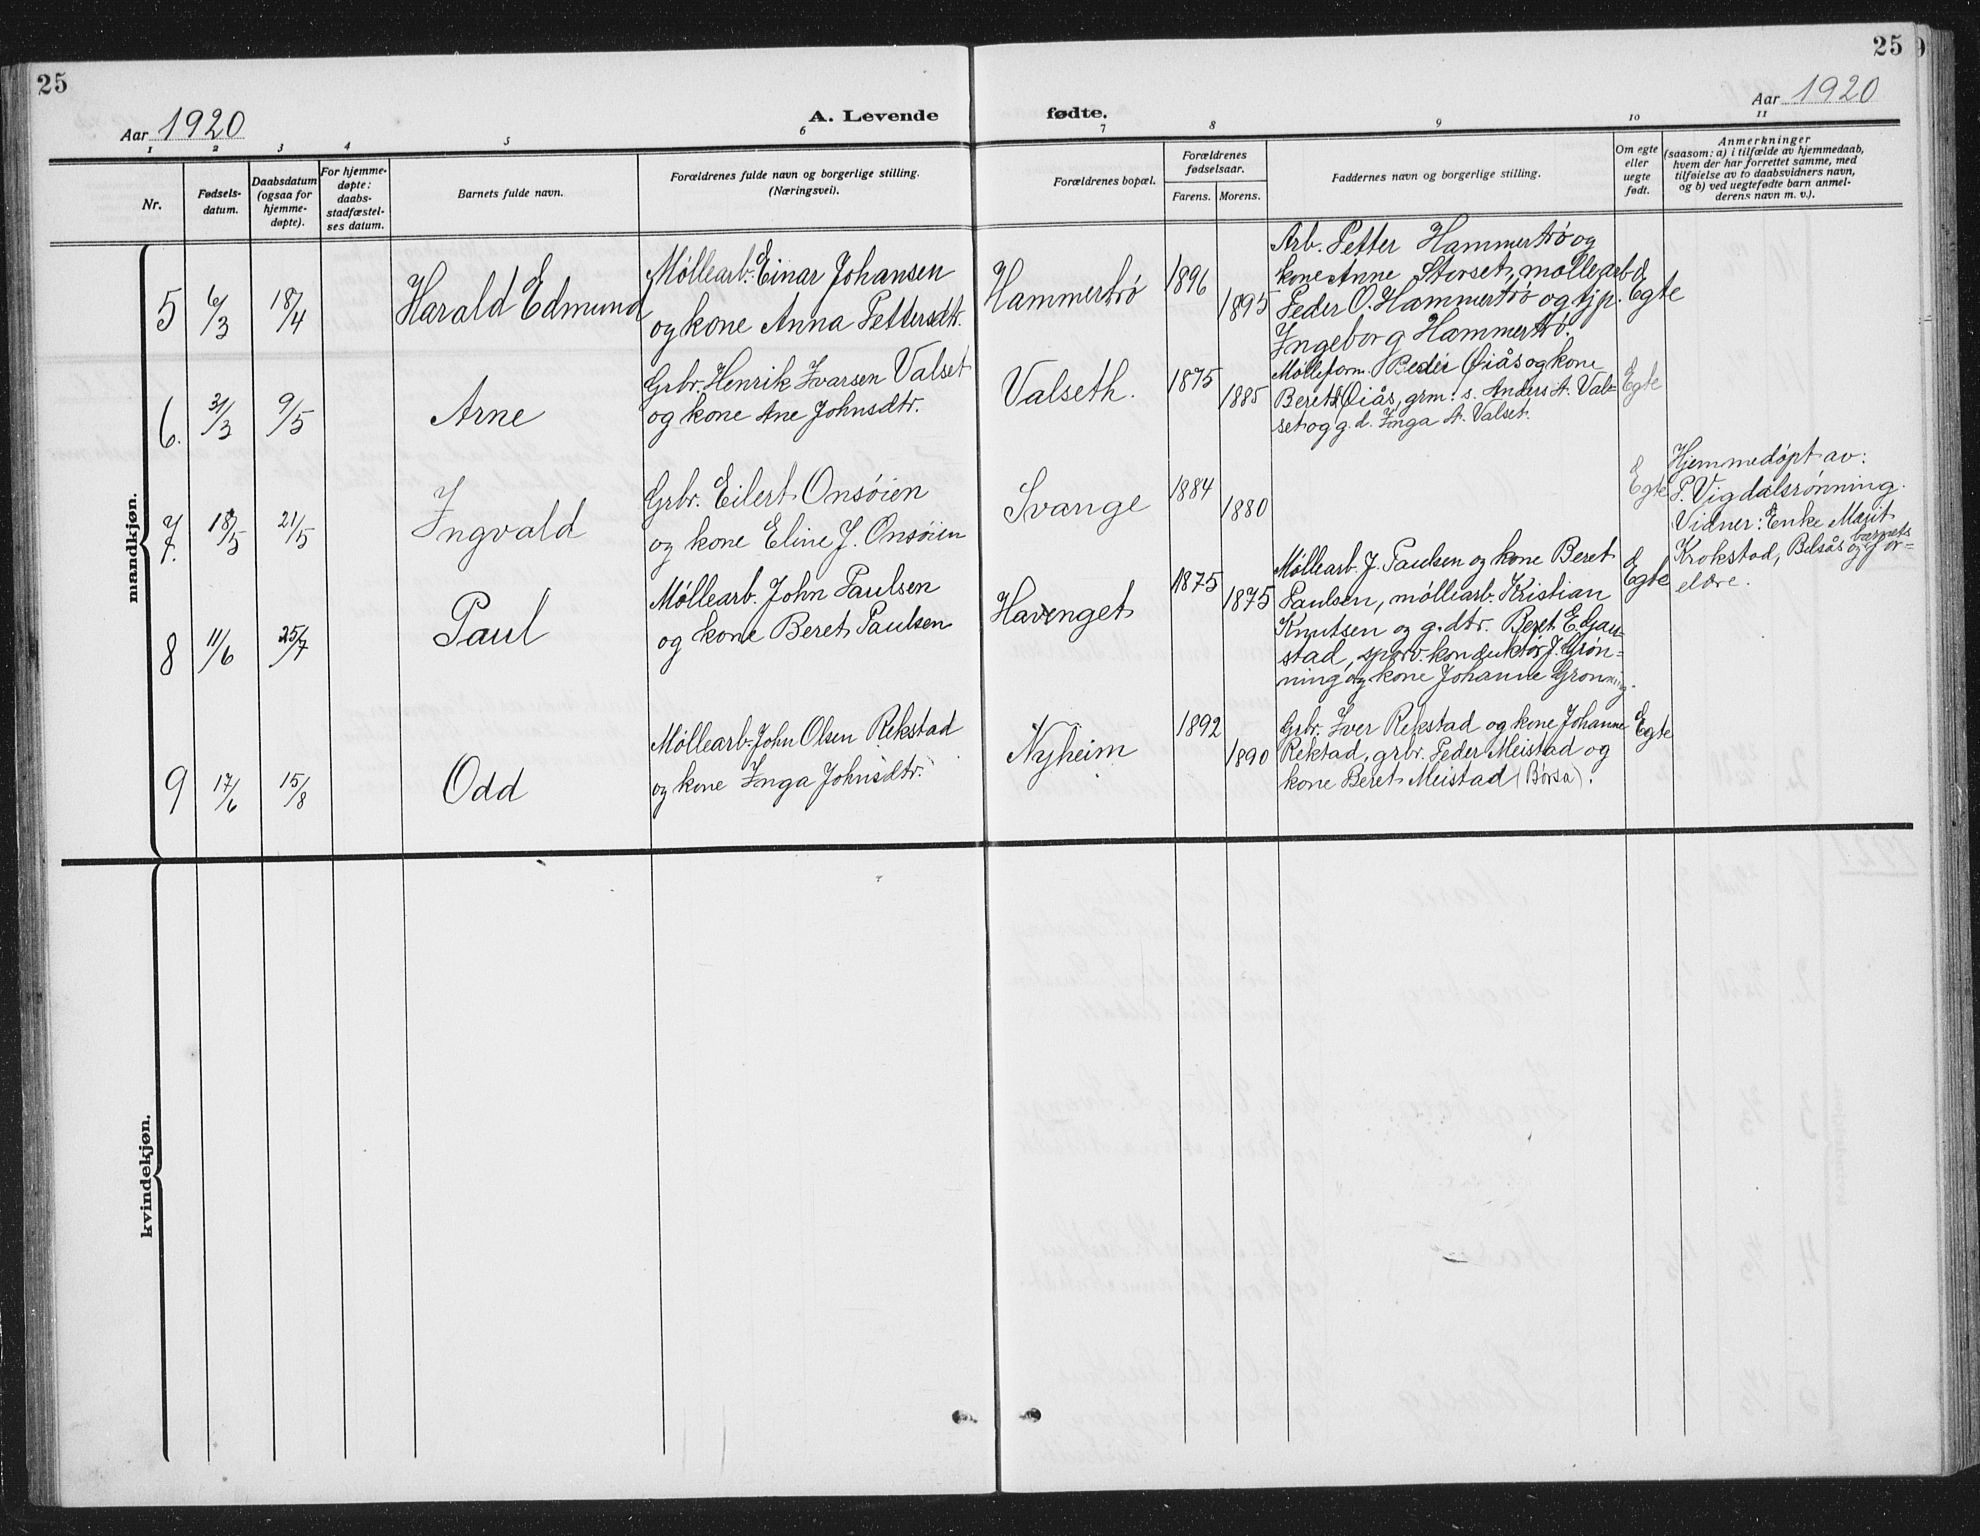 25
25
Aar 1920
A. Levende fødte.
Aar 1920
1 2 3 4 5 6 7 8 9 10 11
Nr.
Fødsels-
datum.
Daabsdatum
(ogsaa for
hjemme-
døpte).
For hjemme-
døpte:
daabs-
stadfæstel-
ses datum.
Barnets fulde navn.
Forældrenes fulde navn og borgerlige stilling.
(Næringsvei).
Forældrenes bopæl.
Forældrenes
fødselsaar.
Farens. Morens.
Faddernes navn og borgerlige stilling.
Om egte
eller
uegte
født.
Anmerkninger
(saasom: a) i tilfælde av hjemmedaab,
hvem der har forrettet samme, med
tilføielse av to daabsvidners navn,
og b) ved uegtefødte barn anmel-
derens navn m. v.).
mandkjøn.
5 6/3 18/4 Harald Edmund
Møllearb. Einar Johansen
og kone Anna Pettersdtr.
Hammertrø 1896 1895
Arb. Petter Hammertrø og
kone Anne Storset, møllearb.
Peder O. Hammertrø og tjp.
Ingeborg Hammertrø.
Egte
6. 31/3 9/5 Arne
Grbr. Henrik Ivarsen Valset
og kone Ane Johnsdtr.
Valseth. 1875 1885
Mølleform. Peder Øiås og kone
Beret Øiås, grm. s. Anders A. Val-
set og g. d. Inga A. Valset.
Egte
7. 18/5 21/5 Ingvald
Grbr. Eilert Onsøien
og kone Eline J. Onsøien
Svange 1884 1880
Egte
Hjemmedøpt av:
P. Vigdalsrønning.
Vidner: Enke Marit
Krokstad, Belsås og barnets for-
eldre.
8 11/6 25/7 Paul
Møllearb. John Paulsen
og kone Beret Paulsen
Havenget 1875 1875
Møllearb. J. Paulsen og kone Beret
Paulsen, mølliarb. Kristian
Knutsen og g. dtr. Beret E. Gau-
stad, sporv. konduktør J. Grøn-
ning og kone Johanne Grønning.
Egte
9 17/6 15/8 Odd
Møllearb. John Olsen Rekstad
og kone Inga Johnsdtr.
Nyheim 1892 1890
Grbr. Iver Rekstad og kone Johanne
Rekstad, grbr. Peder Meistad og
kone Beret Meistad (Børsa).
Egte
kvindekjøn.